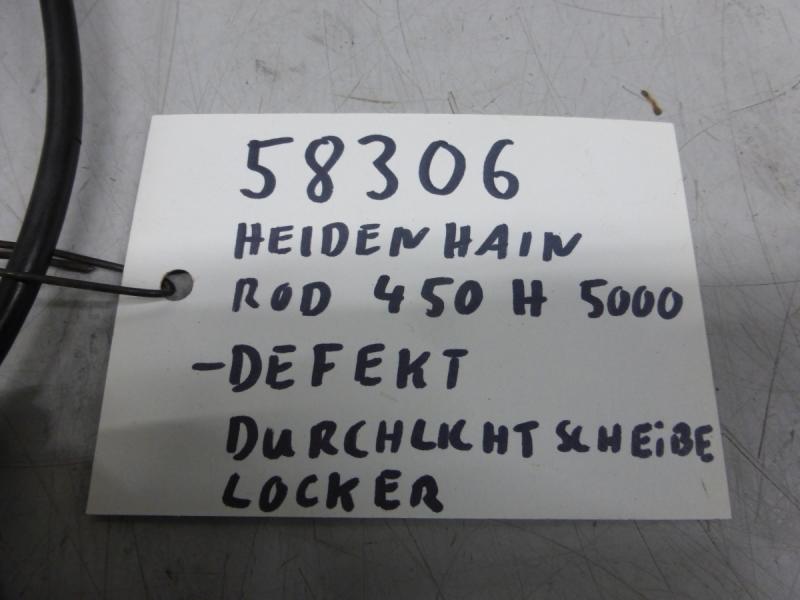 58306
HEIDENHAIN
ROD 450 H 5000
-DEFEKT
DURCHLICHTSCHEIBE
LOCKER